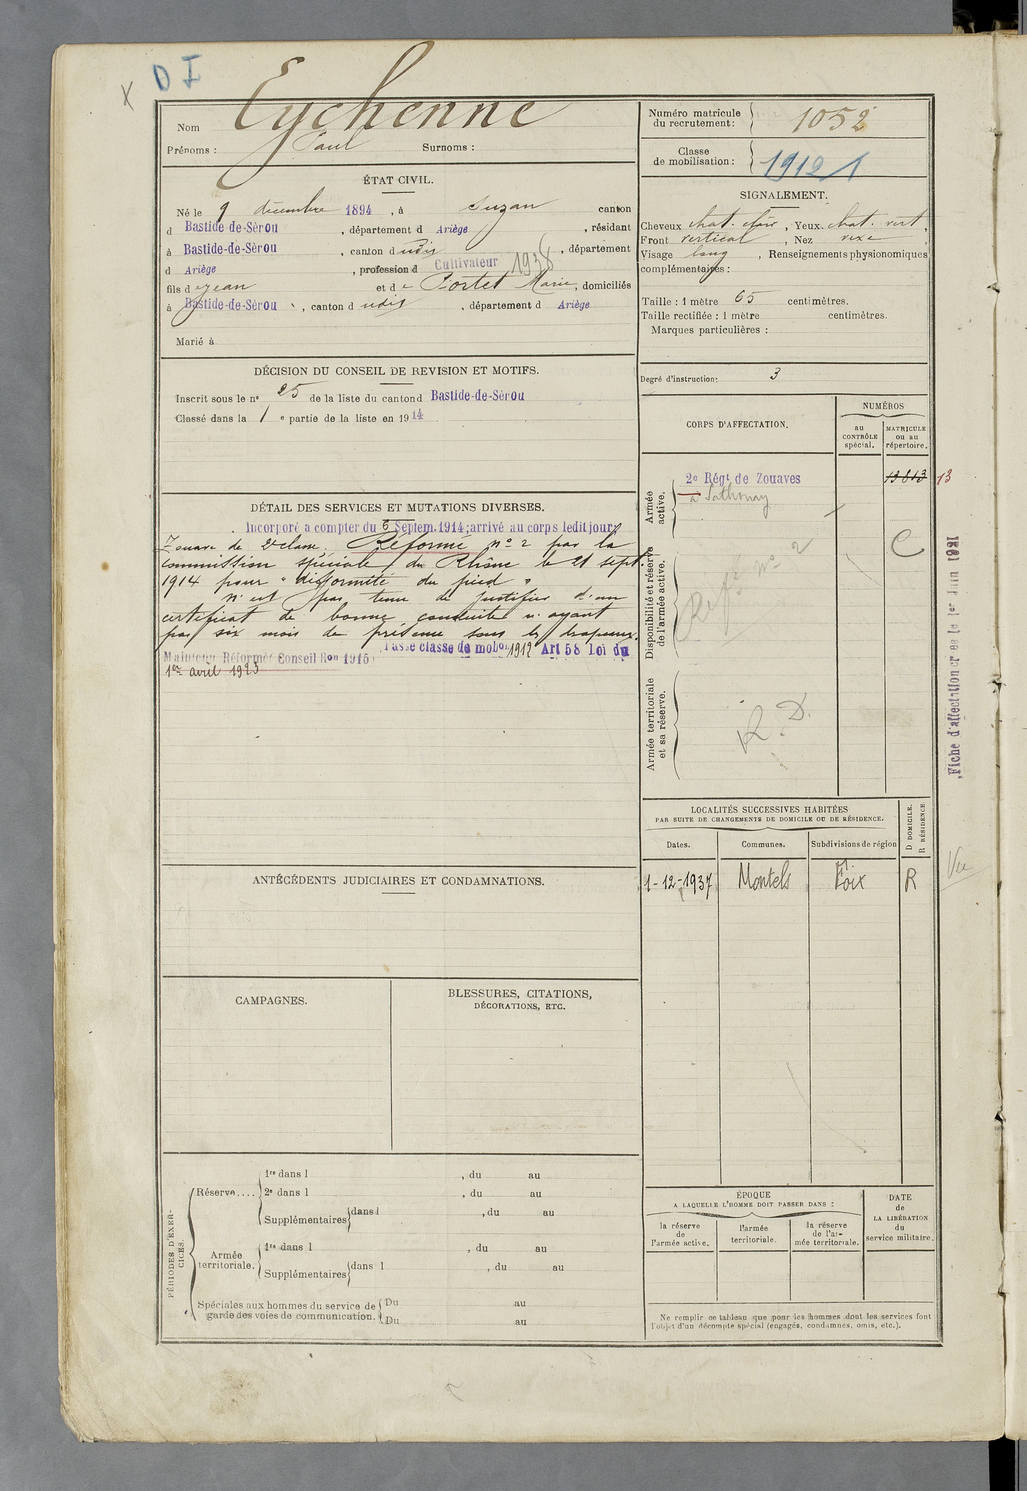 X D I
Nom Eychenne
Prénoms : Paul Surnoms :
ÉTAT CIVIL.
Né le 9 décembre 1894, à Suzan canton
d Bastide-de-Sèrou, département d Ariège, résidant
à Bastide-de-Sèrou, canton d udis, département
d Ariège, profession d Cultivateur 1938
fils de Jean et de Portet Marie, domiciliés
à Bastide-de-Sèrou, canton d udis, département d Ariège
Marié à
DÉCISION DU CONSEIL DE REVISION ET MOTIFS.
Inscrit sous le nº 25 de la liste du canton d Bastide-de-Sèrou
Classé dans la 1 e partie de la liste en 1914
DÉTAIL DES SERVICES ET MUTATIONS DIVERSES.
Incorporé à compter du 6 Septem. 1914; arrivé au corps ledit jour
Zouave de 2e classe. Réformé nº 2 par la
commission spéciale du Rhône le 21 sept.
1914 pour "difformité du pied"
N'est pas tenu de justifier d'un
certificat de bonne conduite n'ayant
pas six mois de présence sous les drapeaux.
Maintenu Réformé Conseil Ron 1915. Passe classe de mobon 1912 Art 58 Loi du
1er avril 1923
ANTÉCÉDENTS JUDICIAIRES ET CONDAMNATIONS.
CAMPAGNES.
BLESSURES, CITATIONS,
DÉCORATIONS, ETC.
PÉRIODES D'EXER-
CICES.
Réserve.... 1re dans l , du au
2e dans l , du au
Supplémentaires dans l , du au
Armée territoriale. 1re dans l , du au
Supplémentaires dans l , du au
Spéciales aux hommes du service de garde des voies de communication. Du au
Du au
Numéro matricule du recrutement : 1052
Classe de mobilisation : 1912 1
SIGNALEMENT.
Cheveux chat. clair, Yeux chat. vert,
Front vertical, Nez rexe,
Visage long, Renseignements physionomiques
complémentaires :
Taille : 1 mètre 65 centimètres.
Taille rectifiée : 1 mètre centimètres.
Marques particulières :
Degré d'instruction: 3
CORPS D'AFFECTATION.
NUMÉROS
au CONTRÔLE spécial.
MATRICULE ou au répertoire.
Armée active.
2e Régt de Zouaves
à Sathonay
13813 13
C
Disponibilité et réserve de l'armée active.
Réf. nº 2
Armée territoriale et sa réserve.
R. D.
Fiche d'affectation créée le 1er Juin 1931
LOCALITÉS SUCCESSIVES HABITÉES
PAR SUITE DE CHANGEMENTS DE DOMICILE OU DE RÉSIDENCE.
Dates. Communes. Subdivisions de région D DOMICILE. R RÉSIDENCE
1-12-1937 Montels Foix R
Vu
ÉPOQUE
A LAQUELLE L'HOMME DOIT PASSER DANS :
la réserve de l'armée active.
l'armée territoriale.
la réserve de l'armée territoriale.
DATE de LA LIBÉRATION du service militaire.
Ne remplir ce tableau que pour les hommes dont les services font
l'objet d'un décompte spécial (engagés, condamnés, omis, etc.).